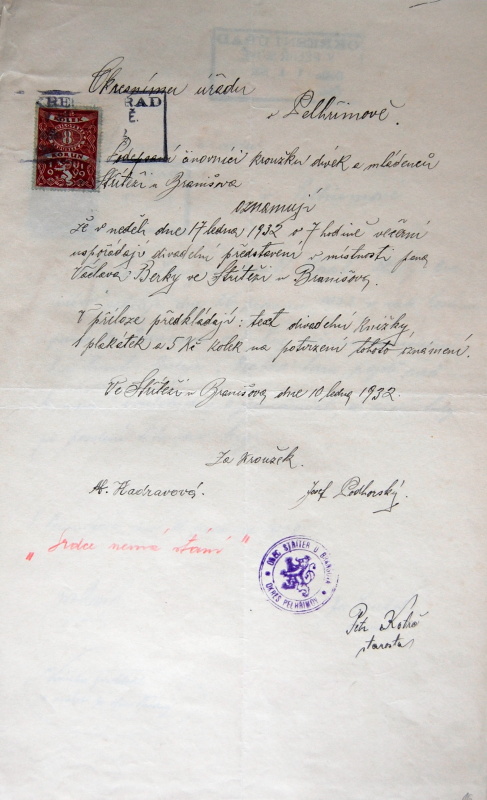 Okresnímu úřadu
v Pelhřimově.
KOLEK
8
KORUN
Podepsaní činovníci kroužku dívek a mládenců
Střítěži u Branišova
oznamují
že v neděli dne 17 ledna 1932 o 7 hodině večerní
uspořádají divadelní představení v místnosti pana
Václava Berky ve Střítěži u Branišova.
V příloze předkládají: text divadelní knížky,
1 plakátek a 5 Kč kolek na potvrzení tohoto oznámení.
Ve Střítěži u Branišova, dne 10 ledna 1932.
Za kroužek.
M. Hadravová. Josef Podhorský.
„Srdce nemá stání"
OBEC STŘÍTEŽ U BRANIŠOVA
OKRES PELHŘIMOV
Petr
starosta